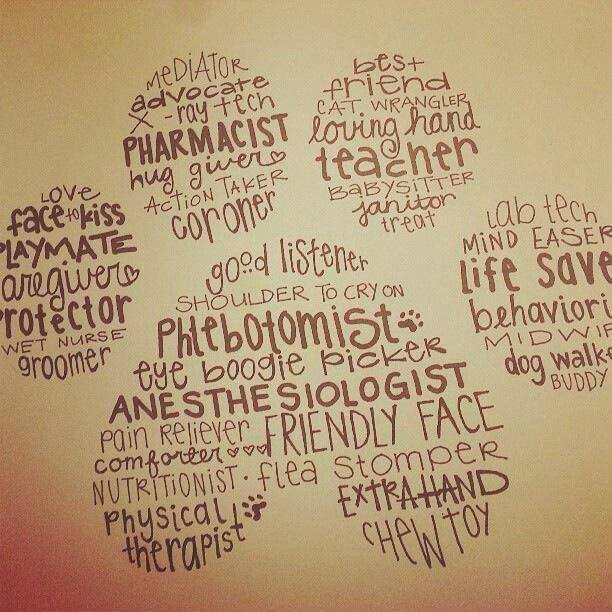 LOVE
face to kiss
PLAYMATE
aregiver
rotector
WET NURSE
groomer
MEDiATOR
advocate
X-ray tech
PHARMACIST
hug giver
ACTION TAKER
coroner
best
friend
CAT WRANGLER
loving hand
teacher
BABYSITTER
janitor
treat
lab tech
MiND EASER
life save
behaviori
MIDWI
dog walk
BUDDY
good listener
SHOULDER TO CRY ON
Phlebotomist
eye boogie picker
ANESTHESIOLOGIST
pain Reliever FRIENDLY FACE
comforter
NUTRITIONIST · flea Stomper
physical EXTRA HAND
therapist CHEW TOY